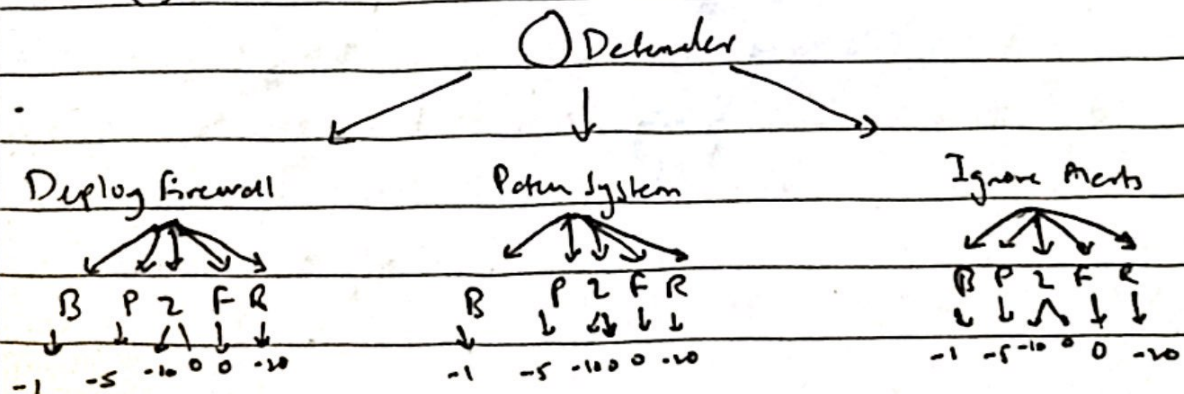 Defender
Deploy Firewall Patch System Ignore Alerts
B P Z F R B P Z F R B P Z F R
-1 -5 -10 0 0 -20 -1 -5 -10 0 0 -20 -1 -5 -10 0 0 -20